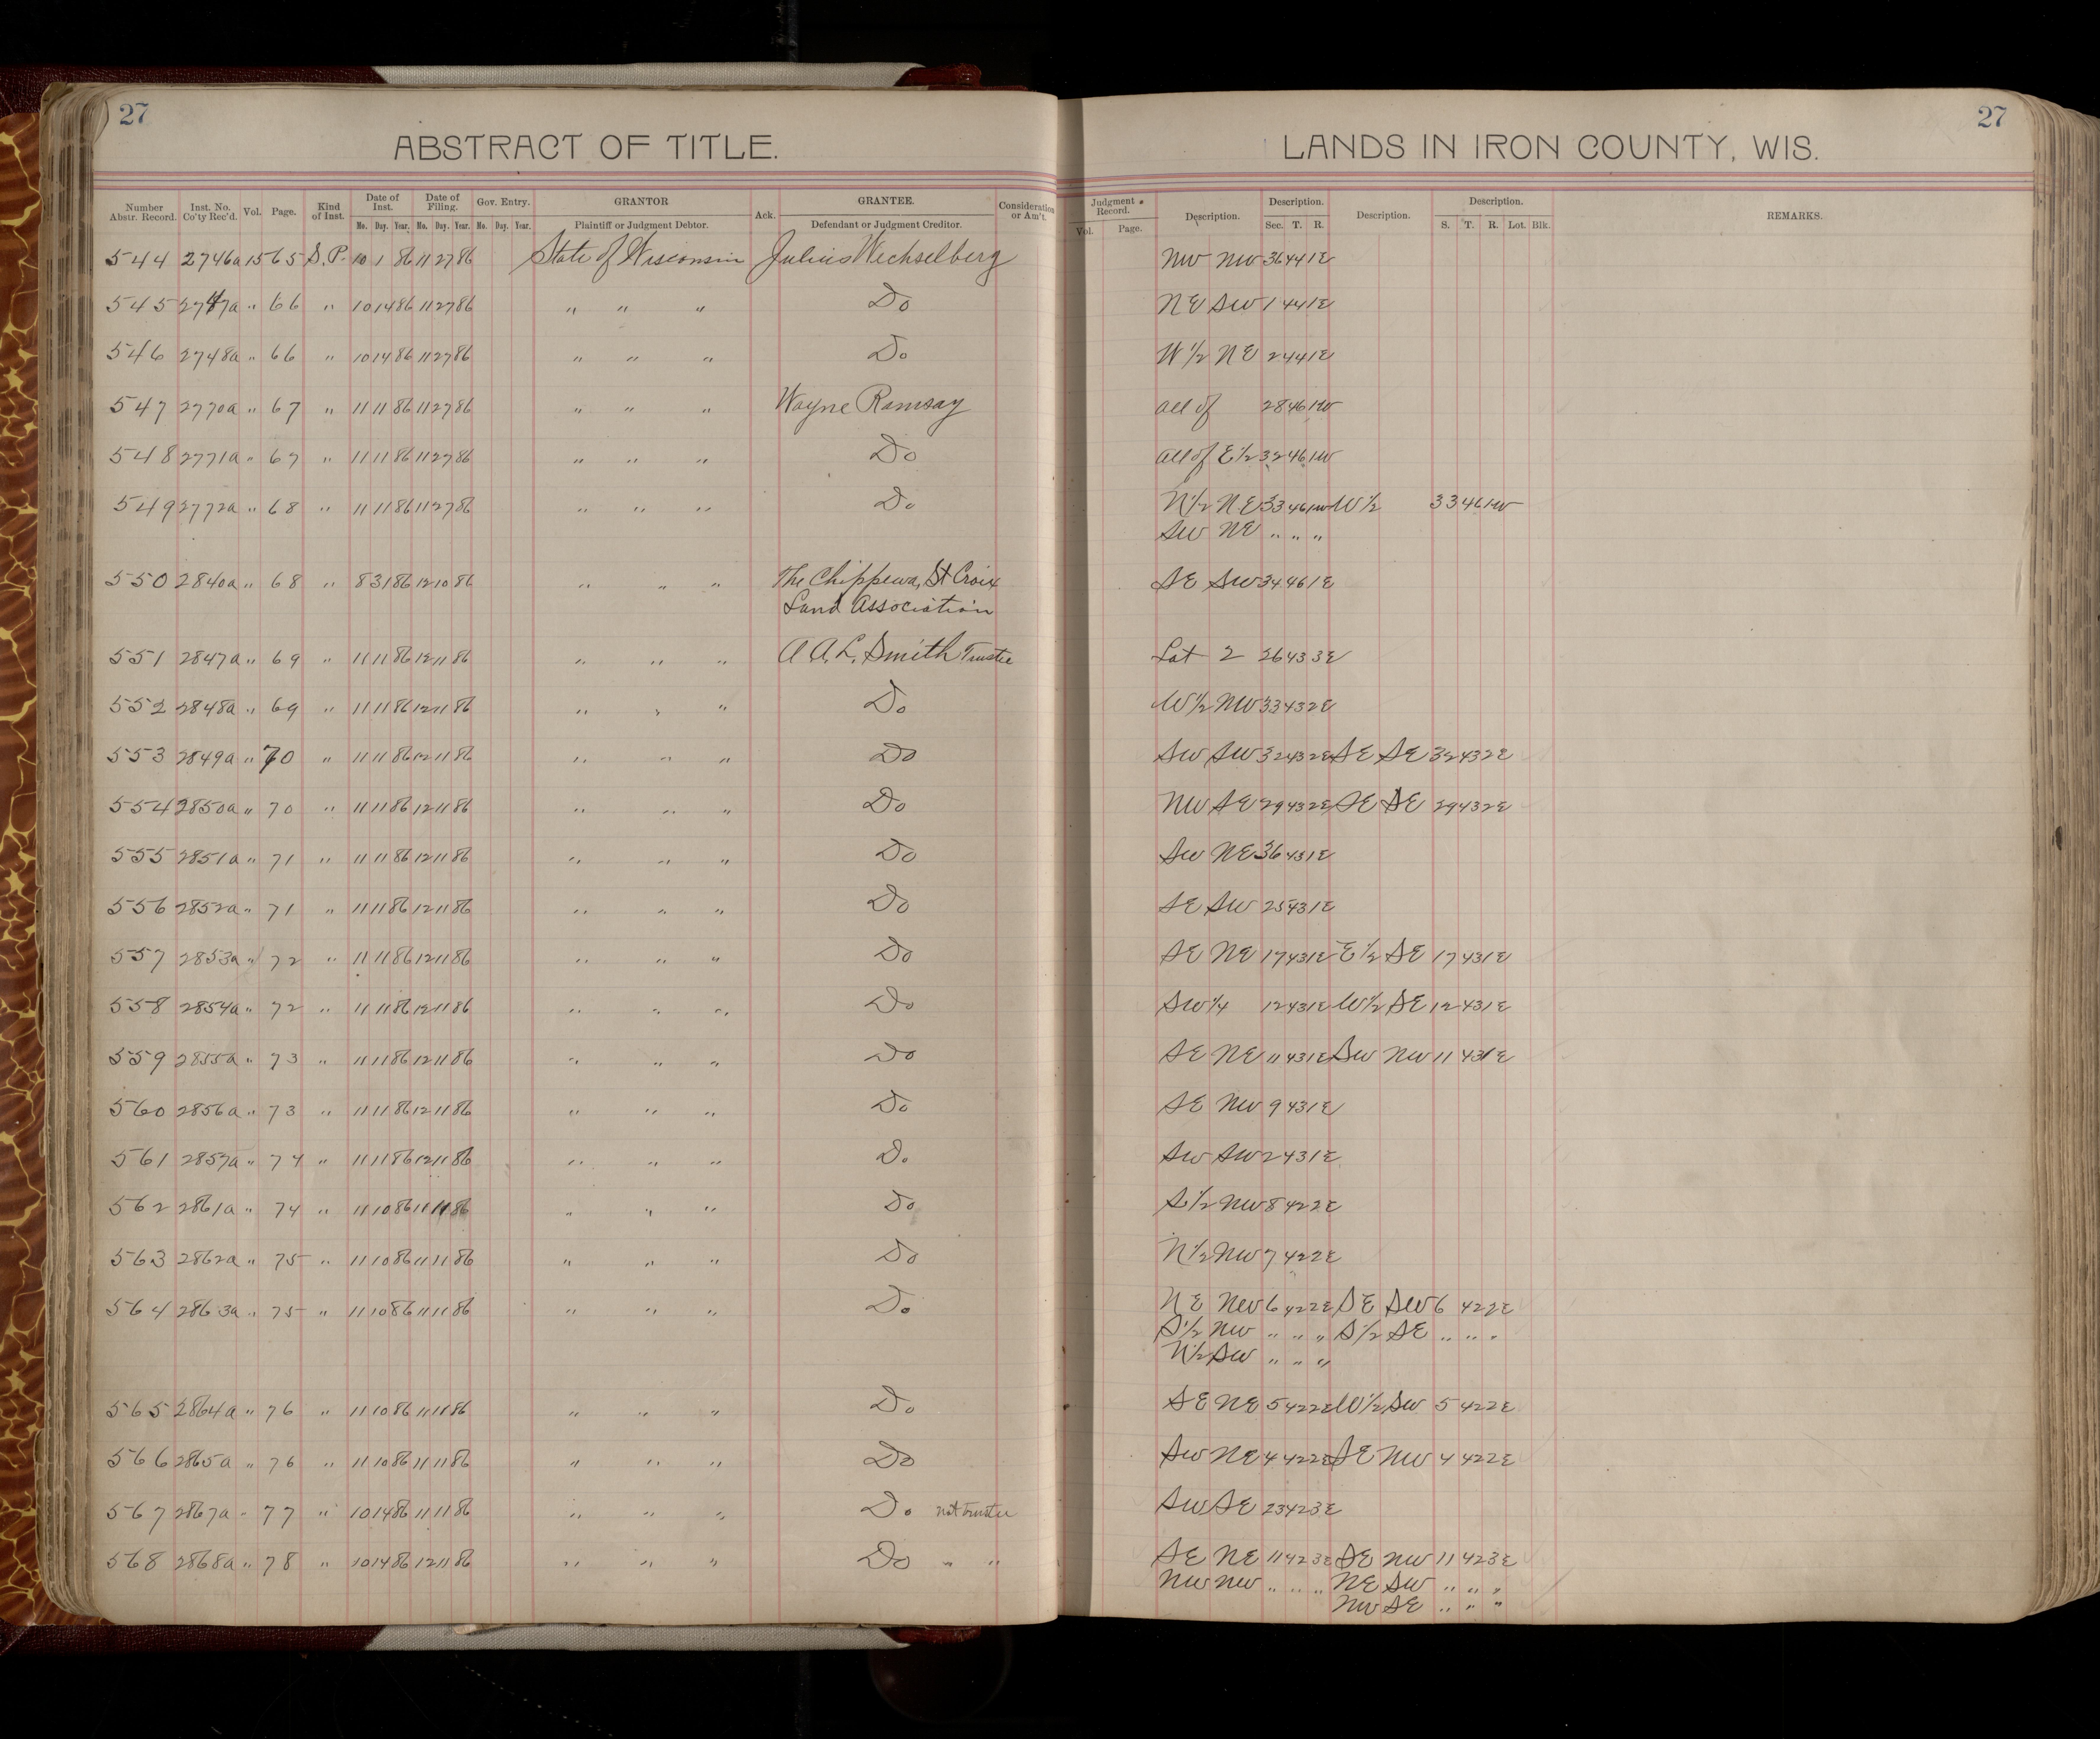 27
27
ABSTRACT OF TITLE.
LANDS IN IRON COUNTY, WIS.
Number Abstr. Record. Inst. No. Co'ty Rec'd. Vol. Page. Kind of Inst. Date of Inst. Mo. Day. Year. Date of Filing. Mo. Day. Year. Gov. Entry. Mo. Day. Year. GRANTOR Plaintiff or Judgment Debtor. Ack. GRANTEE. Defendant or Judgment Creditor. Consideration or Am't. Judgment Record. Vol. Page. Description. Description. Sec. T. R. Description. Description. S. T. R. Lot. Blk. REMARKS.
544 2746a 15 65 S.P. 10 1 86 11 27 86 State of Wisconsin Julius Wechselberg NW NW 36 44 1E
545 2747a " 66 " 10 14 86 11 27 86 " " " Do NE SW 1 44 1E
546 2748a " 66 " 10 14 86 11 27 86 " " " Do W 1/2 NE 2 44 1E
547 2770a " 67 " 11 11 86 11 27 86 " " " Wayne Ramsay all of 28 46 1W
548 2771a " 67 " 11 11 86 11 27 86 " " " Do all of E 1/2 32 46 1W
549 2772a " 68 " 11 11 86 11 27 86 " " " Do N 1/2 NE 33 46 1W W 1/2 33 46 1W
SW NE " " "
550 2840a " 68 " 8 31 86 12 10 86 " " " The Chippewa, St Croix SE SW 34 46 1E
Land Association
551 2847a " 69 " 11 11 86 12 11 86 " " " A A. L. Smith Trustee Lot 2 26 43 3E
552 2848a " 69 " 11 11 86 12 11 86 " " " Do W 1/2 NW 33 43 2E
553 2849a " 70 " 11 11 86 12 11 86 " " " Do SW SW 32 43 2E SE SE 32 43 2E
554 2850a " 70 " 11 11 86 12 11 86 " " " Do NW SE 29 43 2E SE SE 29 43 2E
555 2851a " 71 " 11 11 86 12 11 86 " " " Do SW NE 36 43 1E
556 2852a " 71 " 11 11 86 12 11 86 " " " Do SE SW 25 43 1E
557 2853a " 72 " 11 11 86 12 11 86 " " " Do SE NE 17 43 1E E 1/2 SE 17 43 1E
558 2854a " 72 " 11 11 86 12 11 86 " " " Do SW 1/4 12 43 1E W 1/2 SE 12 43 1E
559 2855a " 73 " 11 11 86 12 11 86 " " " Do SE NE 11 43 1E SW NW 11 43 1E
560 2856a " 73 " 11 11 86 12 11 86 " " " Do SE NW 9 43 1E
561 2857a " 74 " 11 11 86 12 11 86 " " " Do SW SW 2 43 1E
562 2861a " 74 " 11 10 86 11 11 86 " " " Do S 1/2 NW 8 42 2E
563 2862a " 75 " 11 10 86 11 11 86 " " " Do N 1/2 NW 7 42 2E
564 2863a " 75 " 11 10 86 11 11 86 " " " Do NE NW 6 42 2E SE SW 6 42 2E
S 1/2 NW " " " S 1/2 SE " " "
N 1/2 SW " " "
565 2864a " 76 " 11 10 86 11 11 86 " " " Do SE NE 5 42 2E W 1/2 SW 5 42 2E
566 2865a " 76 " 11 10 86 11 11 86 " " " Do SW NE 4 42 2E SE NW 4 42 2E
567 2867a " 77 " 10 14 86 11 11 86 " " " Do not trustee SW SE 23 42 3E
568 2868a " 78 " 10 14 86 12 11 86 " " " Do " " SE NE 11 42 3E SE NW 11 42 3E
NW NW " " " NE SW " " "
NW SE " " "